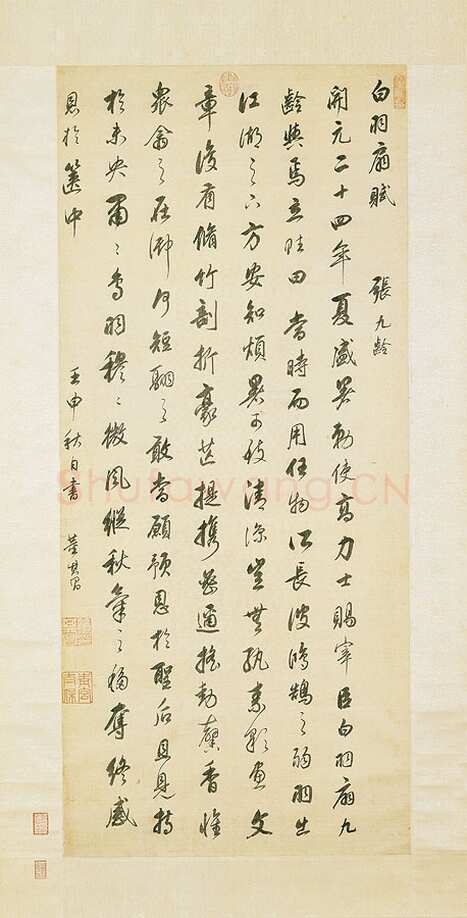 白羽扇賦 張九齡
開元二十四年夏盛暑勅使高力士賜宰臣白羽扇九
齡與焉立賦曰當時而用任物所長彼鴻鵠之弱羽出
江湖之下方安知煩暑可致清涼豈無紈素彩畫文
章復有脩竹剖析豪芒提攜密邇搖動馨香惟
衆禽之在御何短翮之敢當顧預恩於聖后且見持
於未央肅〻鳥羽穆〻微風縱秋氣之移奪終感
恩於篋中
壬申秋日書 董其昌
Shufawang.CN